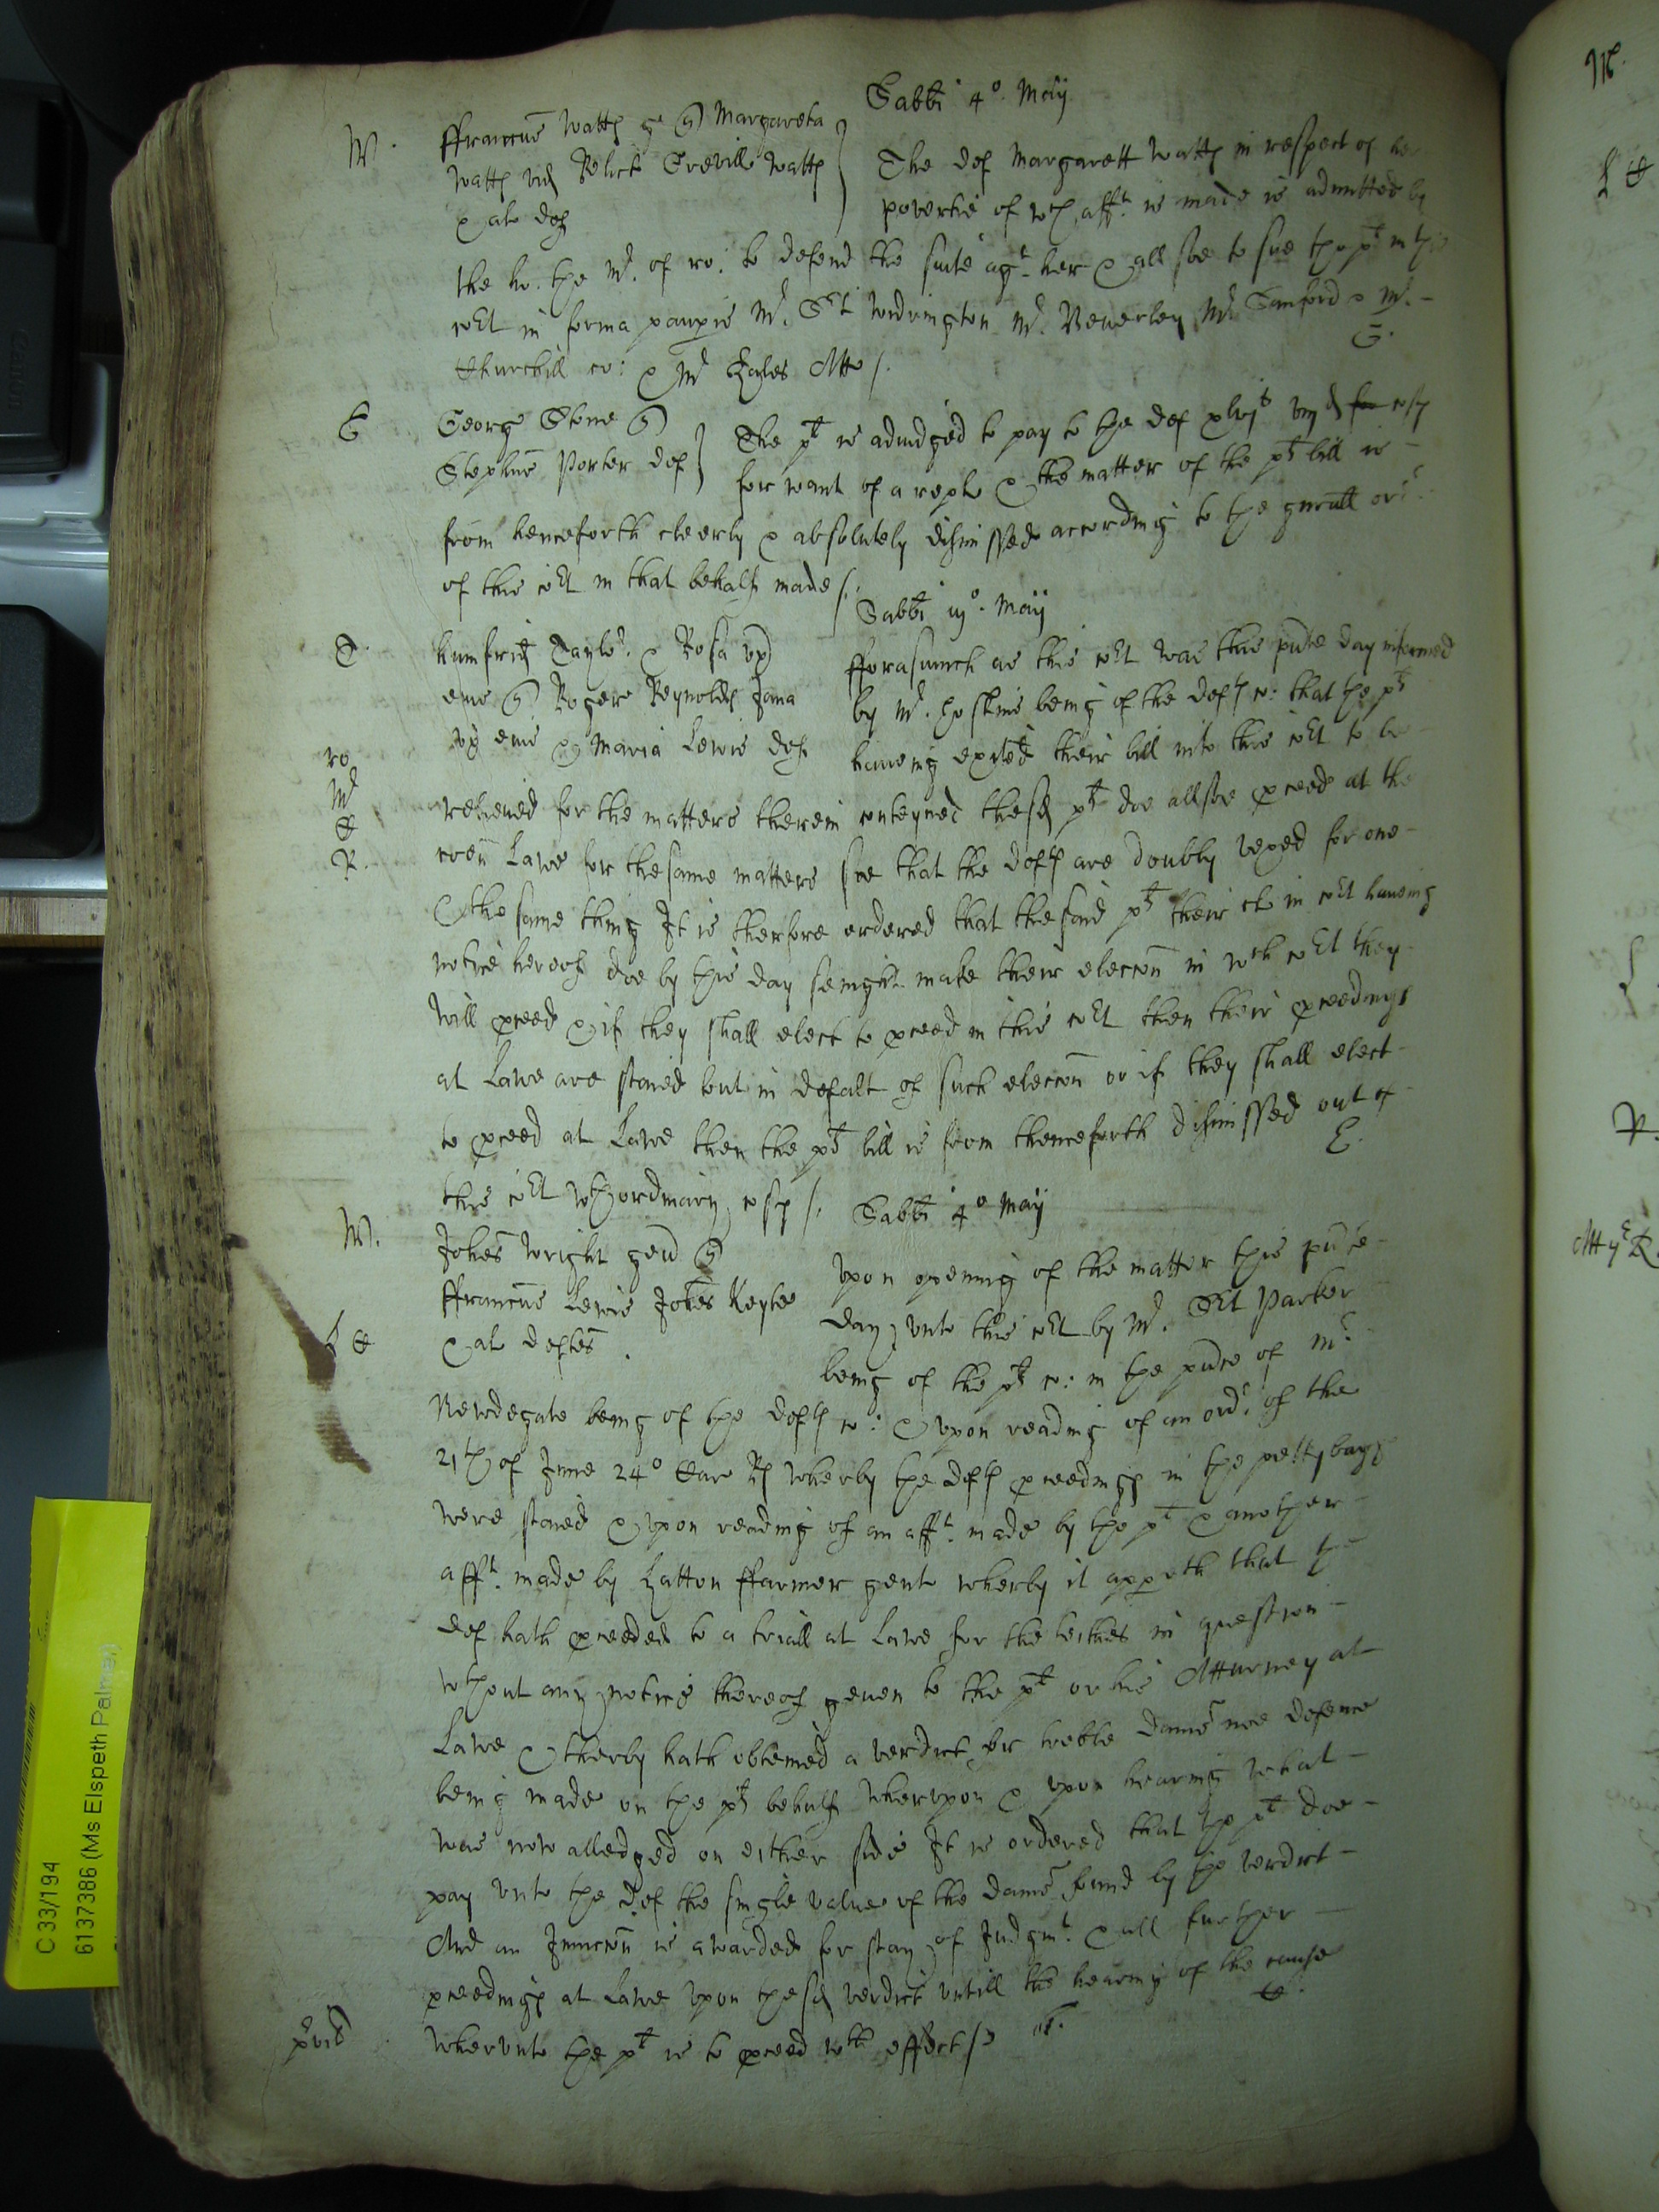 Sabbi 4o. Maij
W. ffrancus Watts q Margareta
Watts vid Relict Grevill Watts
& al def
The def Margarett Watts in respect of her
povertie of wch afft. is made is admitted by
the ho. the Mr. of ro: to defend the suite agt. her & allsoe to sue the plt in this
cort in forma paupis Mr. Sert Widrington Mr. Beuerley Mr Sanford & Mr. -
Churchill co: & Mr Eyles Atto /.
G.
S George Stone q
Stephus Porter def
The plt is adiudged to pay to the def xlvjs viijd for costs
for want of a replc & the matter of the plts bill is -
from henceforth cleerly & absolutely dismissed according to the gnrall ordr.
of this cort in that behalf made /.
Sabbi iiijo. Maij
T. humfrid Taylor. & Rosa vx
eius q Roger Reynolds Jana
vx eius & Maria Lewis def
fforasmuch as this cort was this pnte day informed
by Mr. Hoskins being of the defts co: that the plts
haueing exhited their bill into this cort to be -
ro
Mr
C
R.
releiued for the matters therein conteyned the sd plts doe allsoe pceed at the
coen Lawe for the same matters soe that the defts are doubly vexed for one -
& the same thing It is therfore ordered that the said plts their cl in cort haueing
notice hereof doe by this day senight make their eleccon in wch cort they
will pceed & if they shall elect to pceed in this cort then their pceedings
at Lawe are staied but in defalt of such eleccon or if they shall elect -
to pceed at Lawe then the plts bill is from thenceforth dismissed out of -
this cort wth ordinary costs /.
E.
Sabbi 4o Maij
W. Johes Wright gen q
ffrancus Lewis Johes Keyte
& al deftes.
Vpon opening of the matter this pnte -
day vnto this cort by Mr. Sert Parker
being of the plts co: in the pnce of Mr.
Newdegate being of the defts co: & vpon reading of an ordr. of the
21th of June 24o Car Rs wherby the defts pceedings in the pettybagg
were staied & vpon reading of an afft. made by the plt & another -
afft. made by Hatton ffarmer gent wherby it appeth that the
def hath pceeded to a triall at Lawe for the teithes in question -
wthout any notice thereof geuen to the plt or his Atturney at
Lawe & therby hath obteined a verdict for treble dams noe defence
being made on the plts behalf whervpon & vpon hearing what -
was now alledged on either side It is ordered that the plt doe -
pay vnto the def the single value of the dams found by the verdict -
And an Iniunccon is awarded for stay of Judgmt. & all further -
pceedings at Lawe vpon the sd verdict vntill the hearing of the cause
whervnto the plt is to pceed wth effect /.
C 33/194
6137386 (Ms Elspeth Palmer)